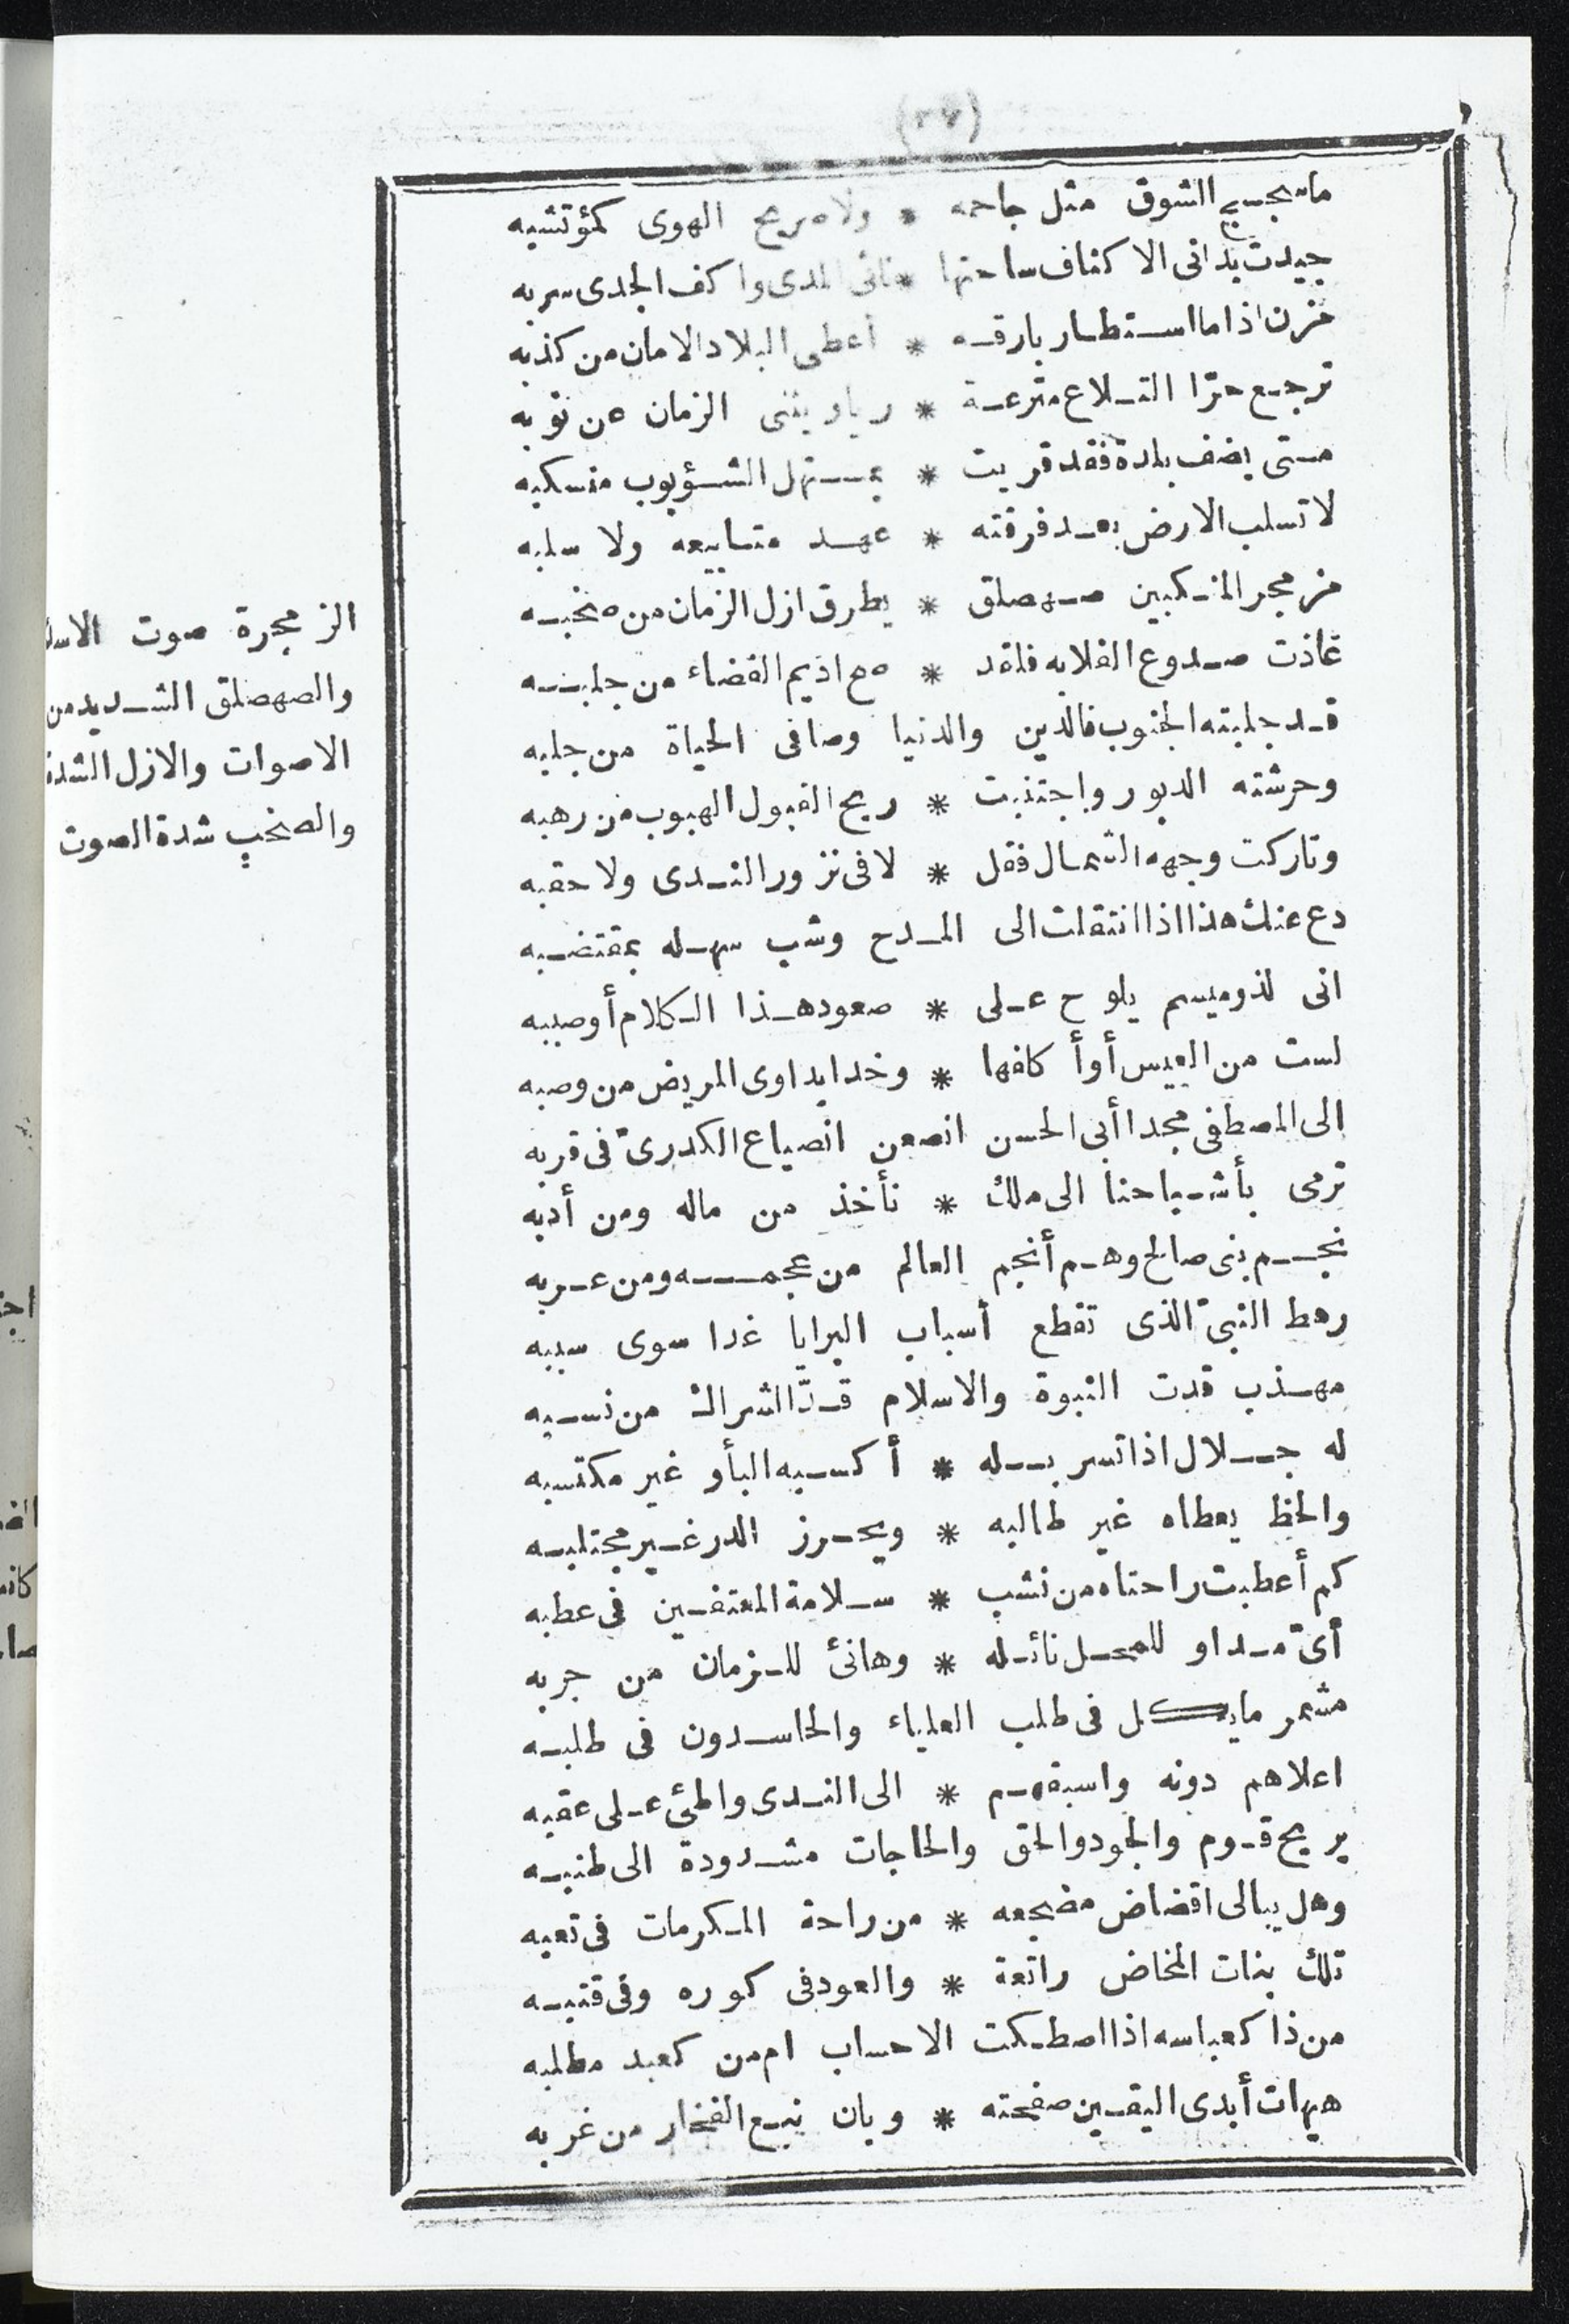 (٣٧)
ما سجسج الشوق مثل جاحمه * ولا صريح الهوى كمؤتشبه
جيدت بدانى الاكناف ساحتها * نائى المدى واكف الجدى سربه
مزن اذا ما استطار بارقه * أعطى البلاد الامان من كذبه
ترجع حرّا التلاع مترعة * ريا ويثنى الزمان عن نوبه
متى يضف بلدة فقد قريت * بمستهل الشؤبوب منسكبه
لا تسلب الارض بعد فرقته * عهد متابيعه ولا سلبه
مزمجر المنكبين صهصلق * يطرق ازل الزمان من صخبه
عاذت صدوع الفلا به فلقد * صح اديم الفضاء من جلبه
قد جلبته الجنوب فالدين والدنيا وصافى الحياة من جلبه
وحرشته الدبور واجتنبت * ريح القبول الهبوب من رهبه
وتاركت وجهه الشمال فقل * لا فى نزور الندى ولا حقبه
دع عنك هذا اذا انتقلت الى المدح وشب سهله بمقتضبه
انى لذو ميسم يلوح على * صعود هذا الكلام أو صببه
لست من العيس أو أكلفها * وخدا يداوى المريض من وصبه
الى المصطفى مجدا أبى الحسن انصعن انصياع الكدرىّ فى قربه
ترمى بأشباحنا الى ملك * نأخذ من ماله ومن أدبه
نجم بنى صالح وهم أنجم العالم من عجمه ومن عربه
رهط النبىّ الذى تقطع أسباب البرايا غدا سوى سببه
مهذب قدت النبوة والاسلام قدّ الشراك من نسبه
له جلال اذا تسربله * أكسبه البأو غير مكتسبه
والحظ يعطاه غير طالبه * ويحرز الدر غير مجتلبه
كم أعطبت راحتاه من نشب * سلامة المعتفين فى عطبه
أىّ مداو للمحل نائله * وهانئ للزمان من جربه
مشمر ما يكل فى طلب العلياء والحاسدون فى طلبه
اعلاهم دونه واسبقهم * الى الندى واطئ على عقبه
يريح قوم والجود والحق والحاجات مشدودة الى طنبه
وهل يبالى اقضاض مضجعه * من راحة المكرمات فى تعبه
تلك بنات المخاض راتعة * والعود فى كوره وفى قتبه
من ذا كعباسه اذا اصطكت الاحساب ام من كعبد مطلبه
هيهات أبدى اليقين صفحته * وبان نبع الفخار من غربه
الزمجرة صوت الاسد
والصهصلق الشديد من
الاصوات والازل الشدة
والصخب شدة الصوت